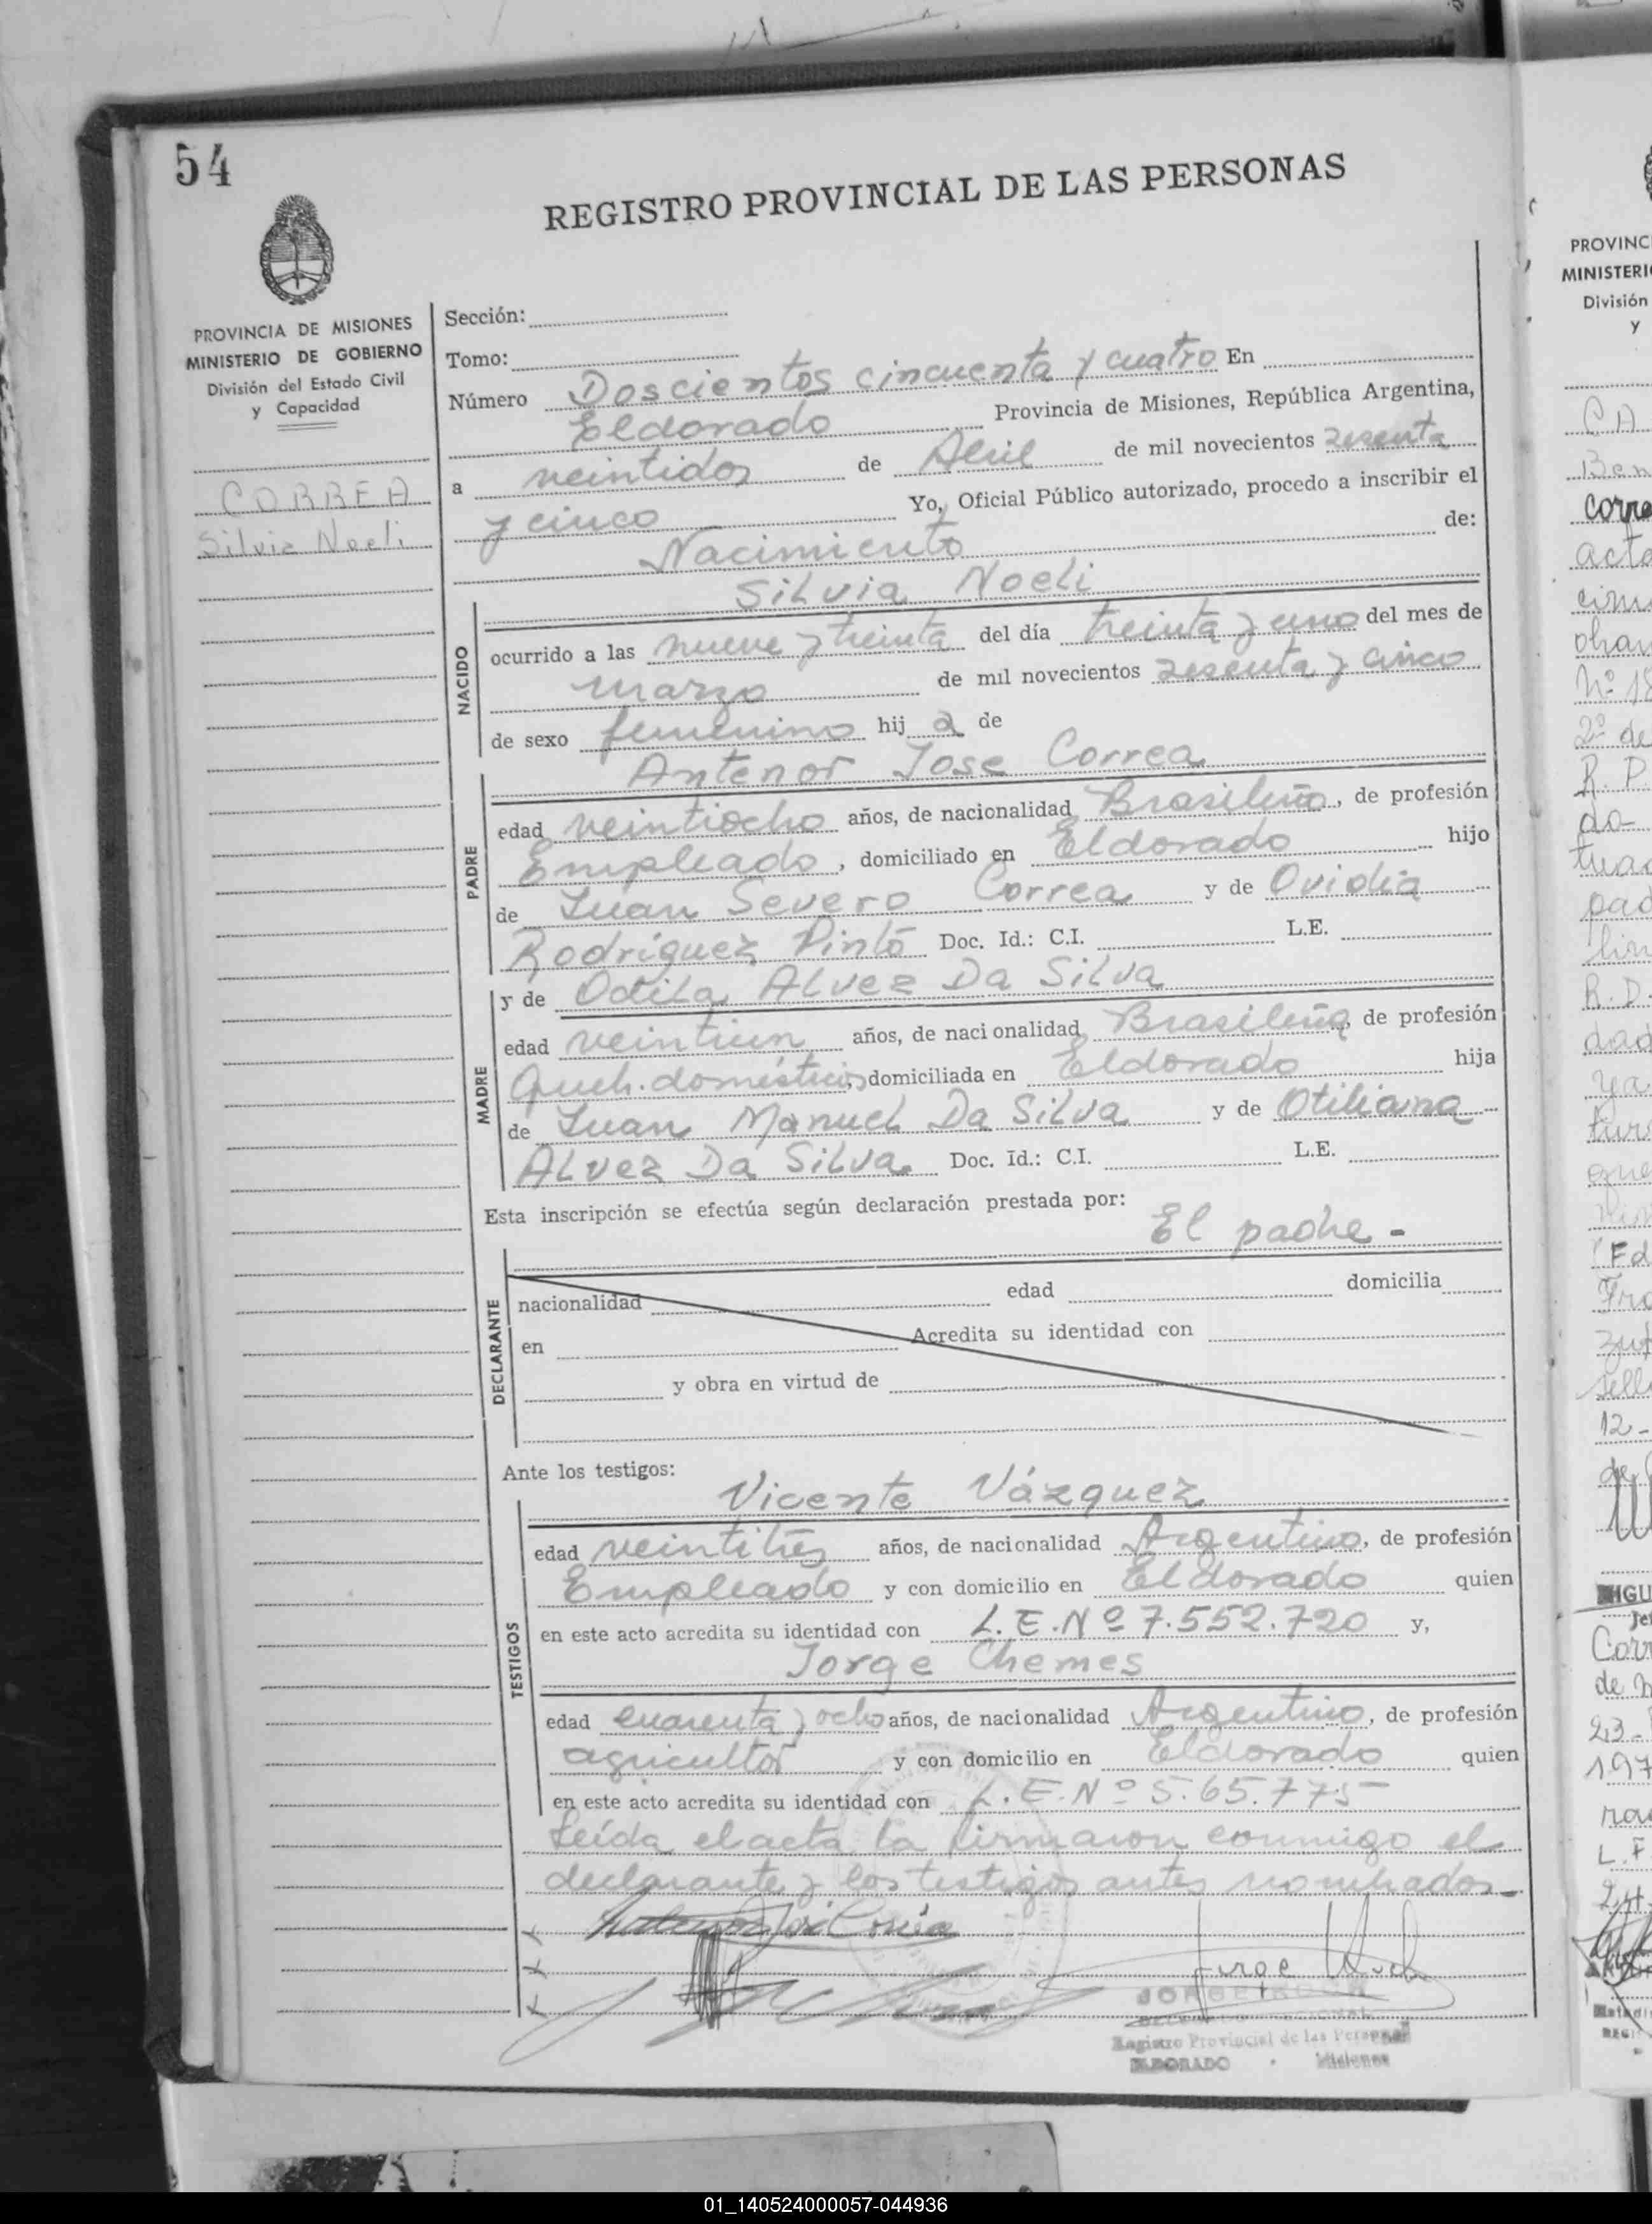 54
REGISTRO PROVINCIAL DE LAS PERSONAS
PROVINCIA DE MISIONES
MINISTERIO DE GOBIERNO
División del Estado Civil
y Capacidad
CORREA
Silvia Noeli
Sección:
Tomo:
Número Doscientos cincuenta y cuatro En
Eldorado Provincia de Misiones, República Argentina,
a veintidos de Abril de mil novecientos sesenta
y cinco Yo, Oficial Público autorizado, procedo a inscribir el
Nacimiento de:
Silvia Noeli
NACIDO
ocurrido a las nueve y treinta del día treinta y uno del mes de
marzo de mil novecientos sesenta y cinco
de sexo femenino hij a de
Antenor Jose Correa
PADRE
edad veintiocho años, de nacionalidad Brasileño, de profesión
Empleado, domiciliado en Eldorado hijo
de Juan Severo Correa y de Ovidia
Rodríguez Pinto Doc. Id.: C.I. L.E.
MADRE
y de Odila Alvez Da Silva
edad veintiun años, de nacionalidad Brasileña, de profesión
Queh. domésticos, domiciliada en Eldorado hija
de Juan Manuel Da Silva y de Otiliana
Alvez Da Silva. Doc. Id.: C.I. L.E.
Esta inscripción se efectúa según declaración prestada por:
El padre -
DECLARANTE
nacionalidad edad domicilia
en Acredita su identidad con
y obra en virtud de
Ante los testigos:
Vicente Vázquez
TESTIGOS
edad veintitrés años, de nacionalidad Argentino, de profesión
Empleado y con domicilio en Eldorado quien
en este acto acredita su identidad con L.E.Nº 7.552.720 y,
Jorge Chemes
edad cuarenta y ocho años, de nacionalidad Argentino, de profesión
agricultor y con domicilio en Eldorado quien
en este acto acredita su identidad con L.E.Nº 5.65.775
Leída el acta la firmaron conmigo el
declarante y los testigos antes nombrados
Registro Provincial de las Personas
ELDORADO - Misiones
PROVINC
MINISTERI
División
y
01_140524000057-044936